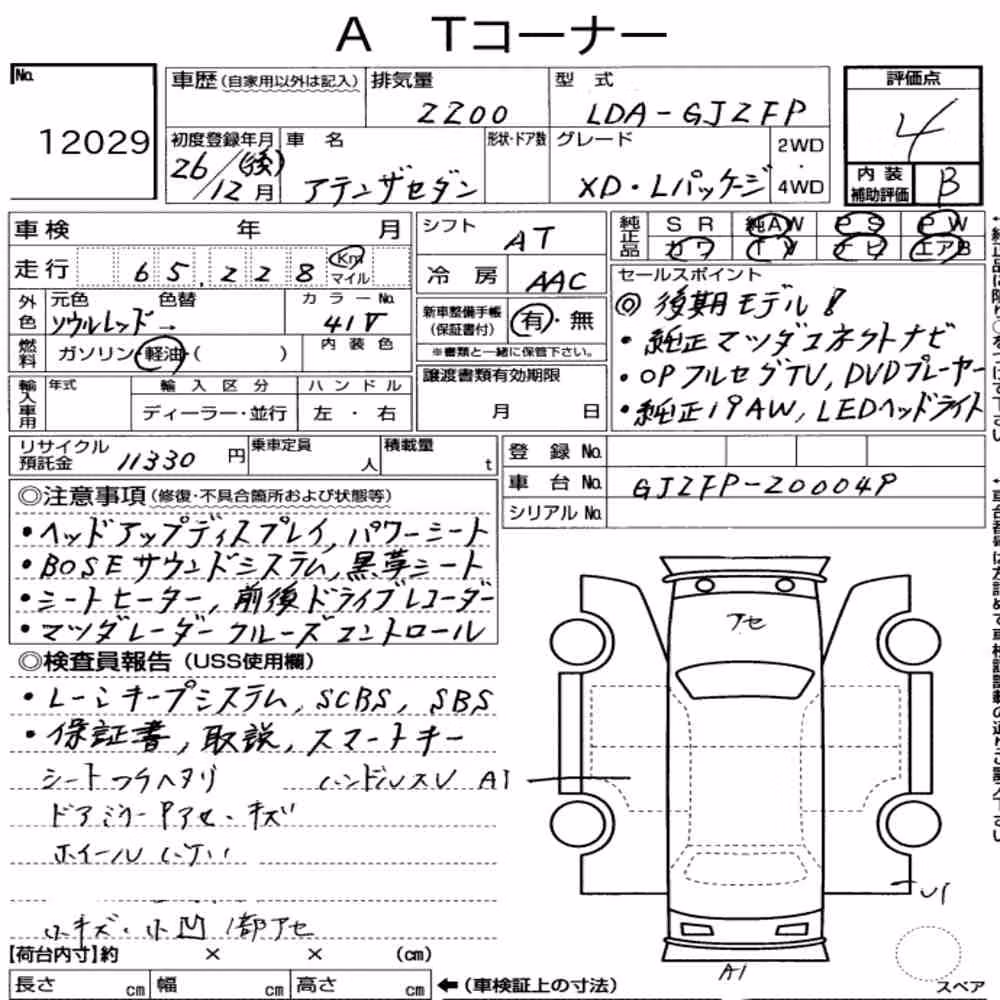 A Tコーナー
No. 12029
車歴(自家用以外は記入) 排気量 2200 型 式 LDA-GJ2FP
評価点 4
初度登録年月 26/12月 (後) 車 名 アテンザセダン 形状・ドア数 グレード XD・Lパッケージ 2WD・4WD
内装補助評価 B
車検 年 月
シフト AT
純正品 SR 純AW PS PW
カワ TV ナビ エアB
走行 65,228 Km マイル
冷 房 AAC
セールスポイント
◎後期モデル!
・純正マツダコネクトナビ
・OPフルセグTV, DVDプレーヤー
・純正19AW, LEDヘッドライト
外色 元色 ソウルレッド→ 色替 カラーNo. 41V
新車整備手帳(保証書付) 有・無
※書類と一緒に保管下さい。
燃料 ガソリン・軽油・( ) 内装色
輸入車用 年式 輸入区分 ディーラー・並行 ハンドル 左・右
譲渡書類有効期限 月 日
リサイクル預託金 11330円 乗車定員 人 積載量 t
登 録 No.
車 台 No. GJ2FP-200049
シリアル No.
◎注意事項(修復・不具合箇所および状態等)
・ヘッドアップディスプレイ, パワーシート
・BOSEサウンドシステム, 黒革シート
・シートヒーター, 前後ドライブレコーダー
・マツダレーダークルーズコントロール
◎検査員報告(USS使用欄)
・レーンキープシステム, SCBS, SBS
・保証書, 取説, スマートキー
シート ハンドルスレ A1
ドアミラー アセ・キズ
ホイール
小キズ・小凹 1部アセ
アセ
U1
A1
【荷台内寸】約 × × (cm)
長さ cm 幅 cm 高さ cm ←(車検証上の寸法)
スペア